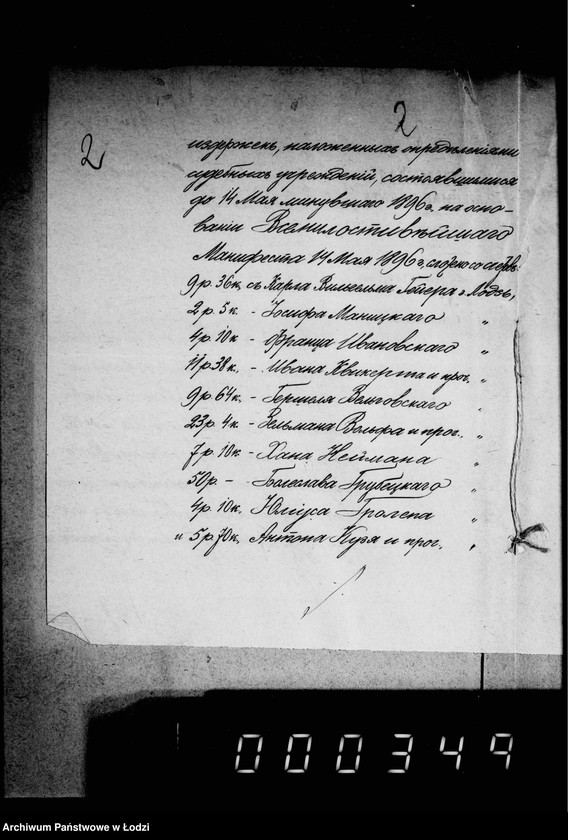 2
2
издержекъ, наложенныхъ опредѣленіями
судебныхъ учрежденій, состоявшимися
до 14 Мая минувшаго 1896 г. на осно-
ваніи Всемилостивѣйшаго
Манифеста 14 Мая 1896 г.
9 р. 36 к. съ Карла Вильгельма Гейера г. Лодзь,
2 р. 5 к. - Іосифа Маницкаго "
4 р. 10 к. - Франца Ивановскаго "
11 р. 38 к. - Ивана Квикерта и проч. "
9 р. 64 к. - Гершеля Велговскаго "
23 р. 4 к. - Зельмана Вольфа и проч. "
7 р. 10 к. - Хана Неймана "
50 р. - - Болеслава Грубецкаго "
4 р. 10 к. Юліуса "
" 5 р. 70 к. Антона Кузя и проч. "
000349
Archiwum Państwowe w Łodzi